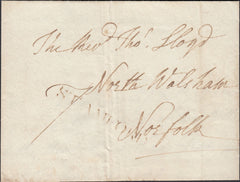 The Revd Thos. Lloyd
North Walsham
7
Norfolk